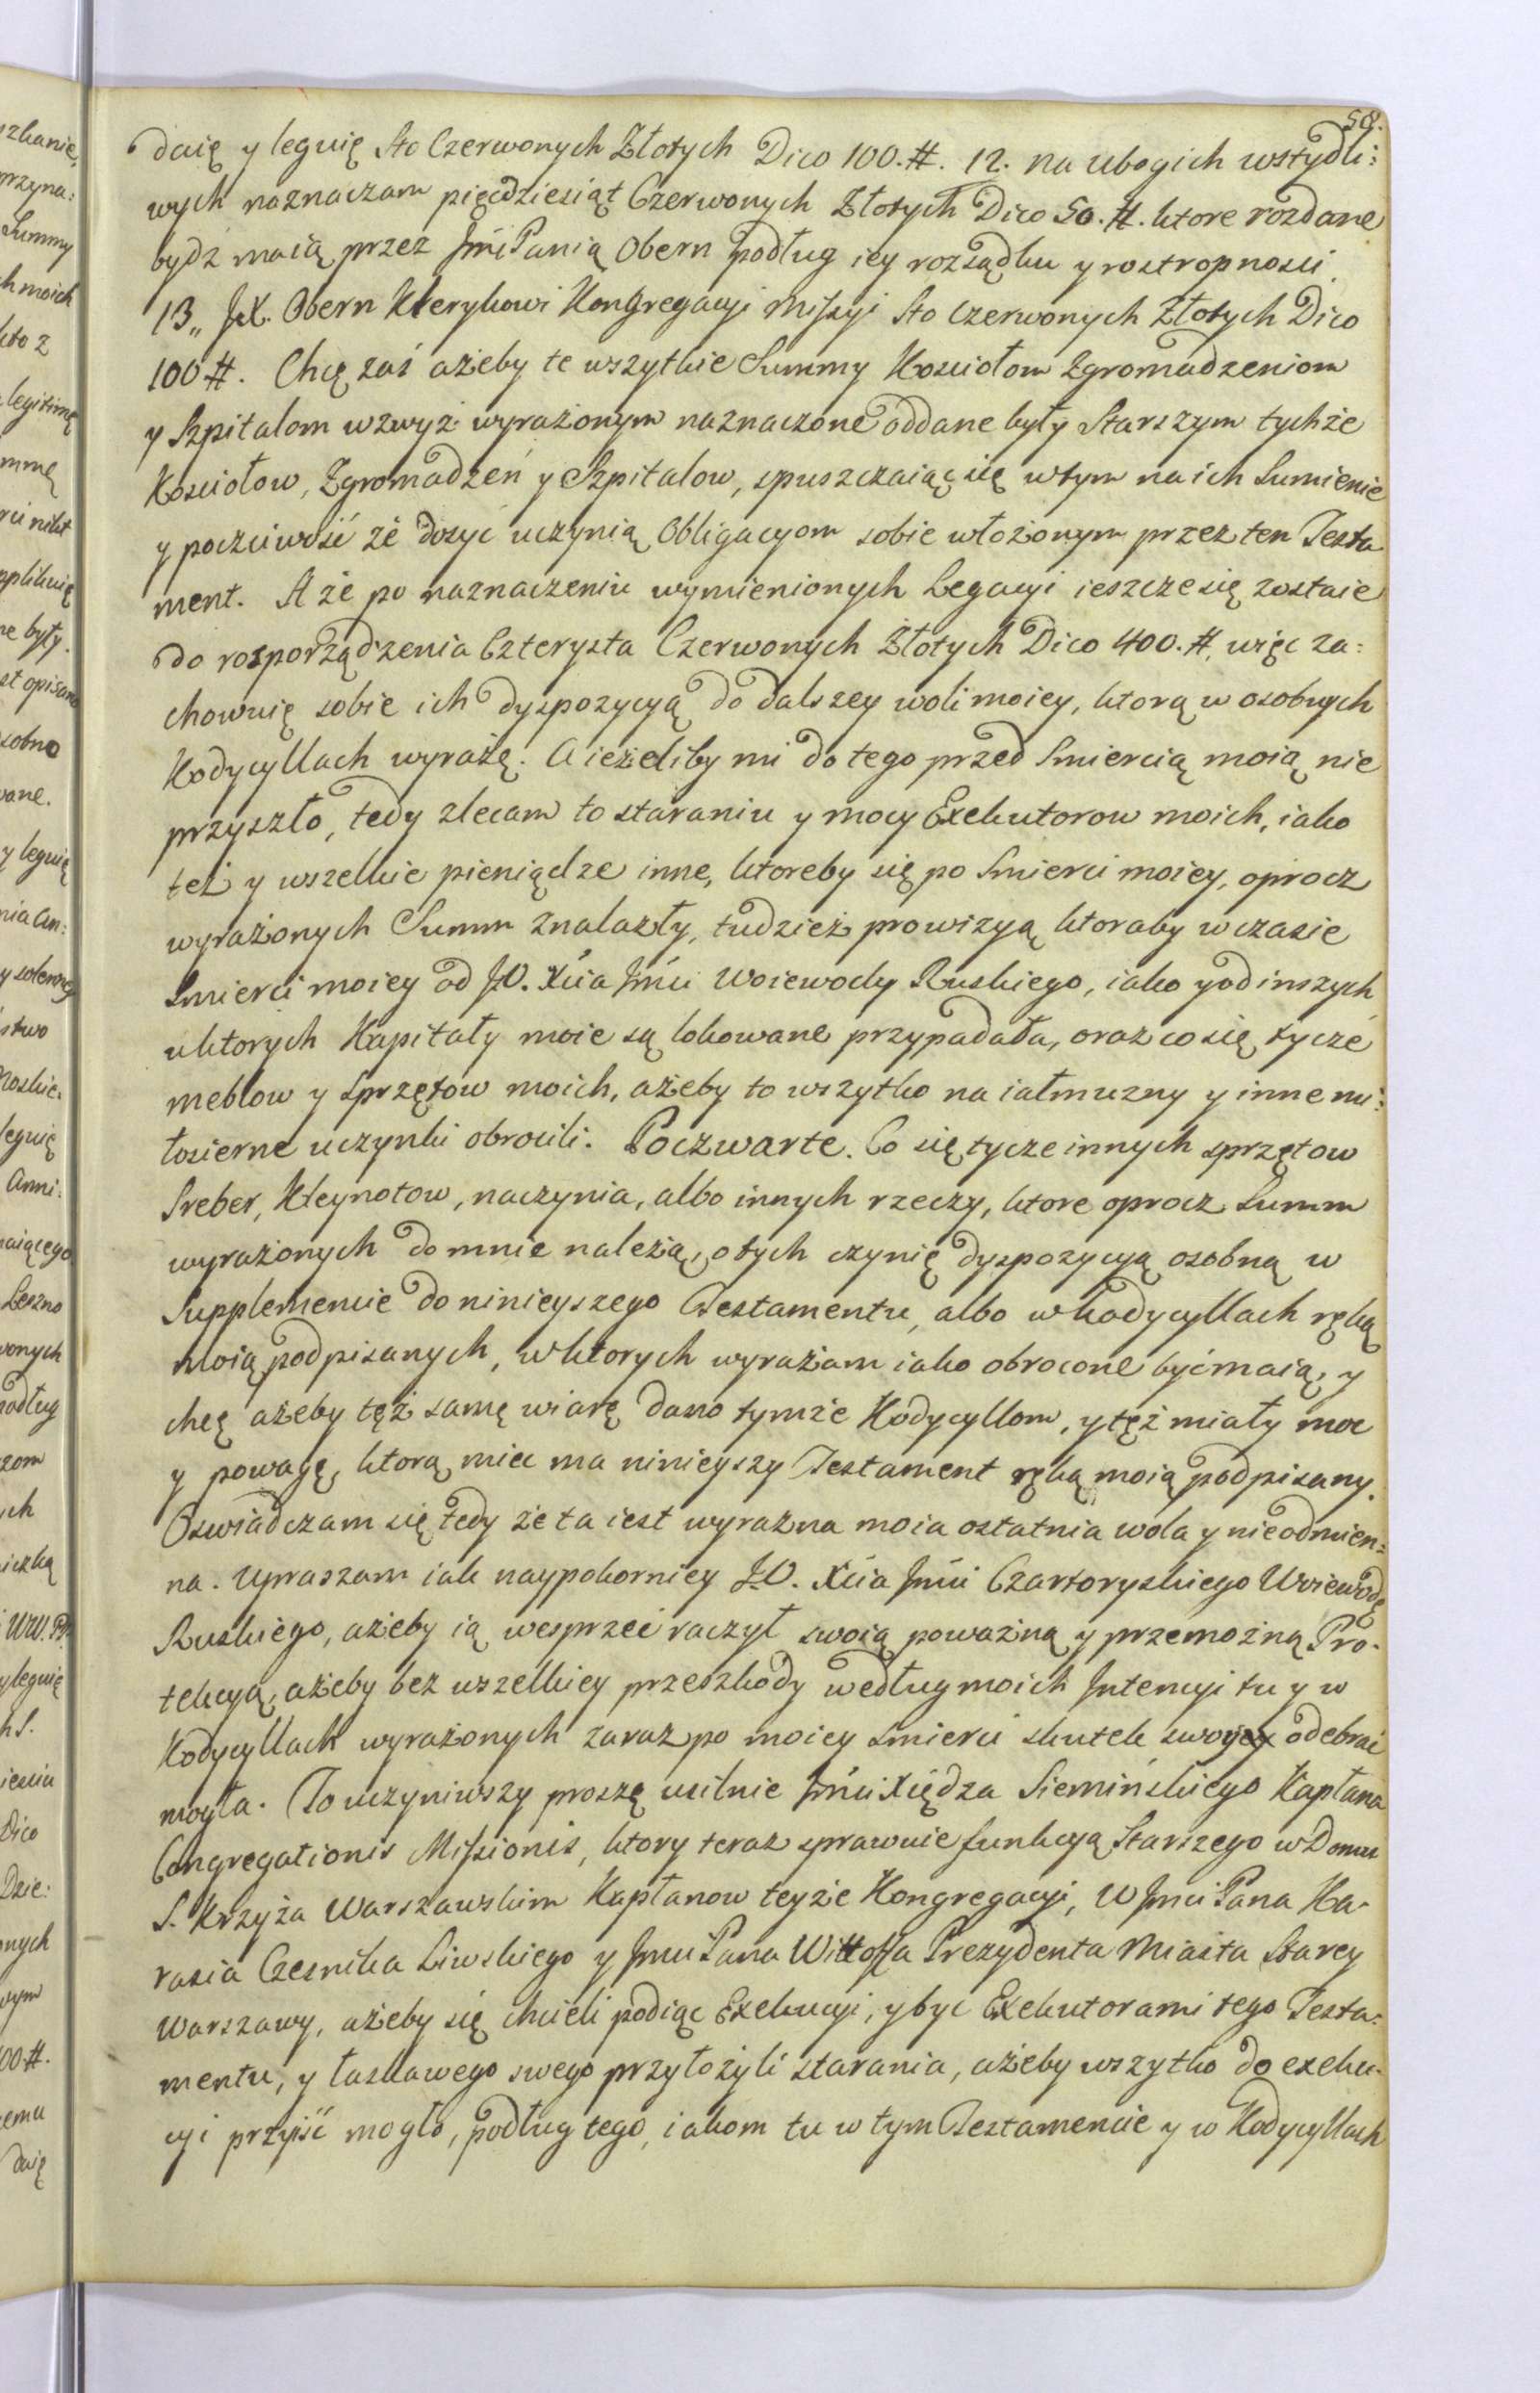 58.
daię y leguię Sto Czerwonych Złotych Dico 100.#. 12. na ubogich wstydli:
wych naznaczam pięcdziesiąt Czerwonych Złotych Dico 50.#. ktore rozdane
bydź maią przez Jmć Panią Obern podług iey rozsądku y rostropnosci.
13,, JX. Obern Klerykowi Kongregacyi Missyi Sto Czerwonych Złotych Dico
100#. Chcę zaś ażeby te wszytkie Summy Kosciołom Zgromadzeniom
y Szpitalom wzwyż wyrażonym naznaczone oddane były Starszym tychże
Kosciołow, Zgromadzeń y Szpitalow, spuszczaiąc się w tym na ich Sumienie
y poczciwość że dosyć uczynią Obligacyom sobie włożonym przez ten Testa
ment. A że po naznaczeniu wymienionych Legacyi ieszcze się zostaie
do rosporządzenia Czterysta Czerwonych Złotych Dico 400.#. więc za:
chowuię sobie ich dyspozycyą do dalszey woli moiey, ktorą w osobnych
Kodycyllach wyrażę. A ieżeliby mi do tego przed Smiercią moią nie
przyszło, tedy zlecam to staraniu y mocy Exekutorow moich, iako
też y wszelkie pieniądze inne, ktoreby się po Smierci moiey, oprocz
wyrażonych Summ znalazły, tudzież prowizyą ktoraby w czasie
Smierci moiey od J.O. Xcia Jmci Woiewody Ruskiego, iako y od inszych
u ktorych Kapitały moie są lokowane przypadała, oraz co się tycze
meblow y sprzętow moich, ażeby to wszytko na iałmużny y inne mi:
łosierne uczynki obrocili. Poczwarte. Co się tycze innych sprzętow
Sreber, Kleynotow, naczynia, albo innych rzeczy, ktore oprocz Summ
wyrażonych do mnie należą, o tych czynię dyspozycyą osobną w
Supplemencie do ninieyszego Testamentu, albo w kodycyllach ręką
moią podpisanych, w ktorych wyrażam iako obrocone być maią, y
chcę ażeby tęż samę wiarę dano tymże Kodycyllom, y tęż miały moc
y powagę, ktorą miec ma ninieyszy Testament ręką moią podpisany.
Oswiadczam się tedy że ta iest wyrażna moia ostatnia wola y nieodmien=
na. Upraszam iak naypokorniey J.O. Xcia Jmci Czartoryskiego Woiewodę
Ruskiego, ażeby ią wesprzeć raczył swoią poważną y przemożną Pro-
tekcyą, ażeby bez wszelkiey przeszkody według moich Intencyi tu y w
Kodycyllach wyrażonych zaraz po moiey smierci skutek swoy odebrać
mogła. To uczyniwszy proszę usilnie Jmci Xiędza Siemińskiego Kapłana
Congregationis Missionis, ktory teraz sprawuie funkcyą Starszego w Domu
S. Krzyża Warszawskim Kapłanow teyże Kongregacyi, W Jmci Pana Ka-
rasia Czesnika Liwskiego y Jmci Pana Wittoffa Prezydenta Miasta Starey
Warszawy, ażeby się chcieli podiąc Exekucyi, y byc Exekutorami tego Testa:
mentu, y łaskawego swego przyłożyli starania, ażeby wszytko do exeku-
cyi przyiść mogło, podług tego, iakom tu w tym Testamencie y w Kodycyllach